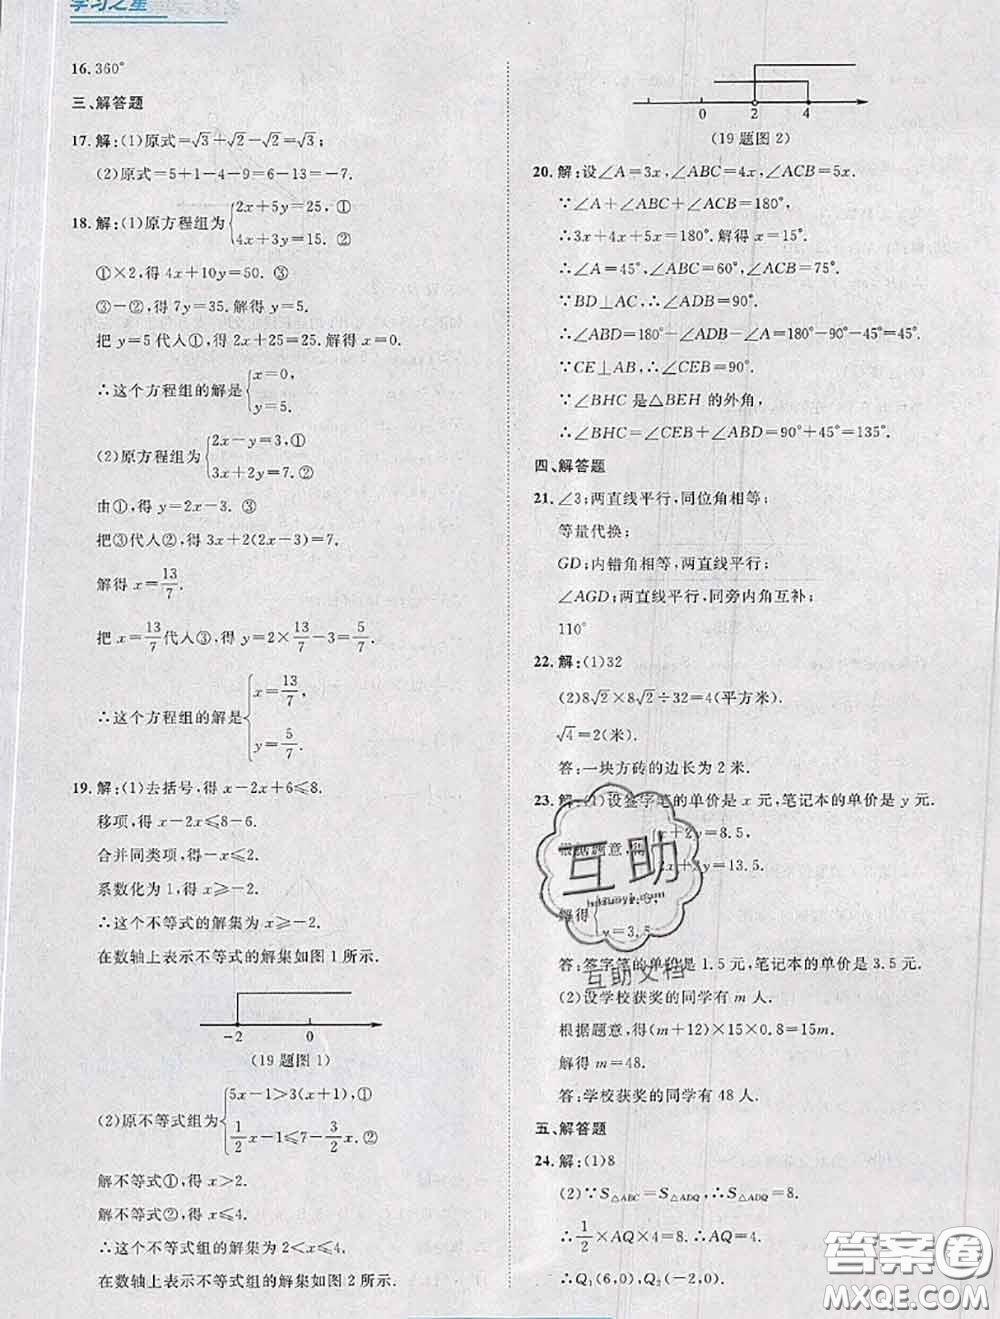 学习之星
16. 360°
三、解答题
17. 解:(1)原式=√3+√2-√2=√3;
(2)原式=5+1-4-9=6-13=-7.
18. 解:(1)原方程组为{2x+5y=25, ①
4x+3y=15. ②
①×2,得 4x+10y=50. ③
③-②,得 7y=35. 解得 y=5.
把 y=5 代入①,得 2x+25=25. 解得 x=0.
∴这个方程组的解是{x=0,
y=5.
(2)原方程组为{2x-y=3,①
3x+2y=7. ②
由①,得 y=2x-3. ③
把③代入②,得 3x+2(2x-3)=7.
解得 x=13/7.
把 x=13/7代入③,得 y=2×13/7-3=5/7.
∴这个方程组的解是{x=13/7,
y=5/7.
19. 解:(1)去括号,得 x-2x+6≤8.
移项,得 x-2x≤8-6.
合并同类项,得-x≤2.
系数化为 1,得 x≥-2.
∴这个不等式的解集为 x≥-2.
在数轴上表示不等式的解集如图 1 所示.
-2 0
(19 题图 1)
(2)原不等式组为{5x-1>3(x+1),①
1/2x-1≤7-3/2x. ②
解不等式①,得 x>2.
解不等式②,得 x≤4.
∴这个不等式组的解集为 2<x≤4.
在数轴上表示不等式组的解集如图 2 所示.
0 2 4
(19 题图 2)
20. 解:设∠A=3x,∠ABC=4x,∠ACB=5x.
∵∠A+∠ABC+∠ACB=180°,
∴3x+4x+5x=180°. 解得 x=15°.
∴∠A=45°,∠ABC=60°,∠ACB=75°.
∵BD⊥AC,∴∠ADB=90°.
∴∠ABD=180°-∠ADB-∠A=180°-90°-45°=45°.
∵CE⊥AB,∴∠CEB=90°.
∵∠BHC 是△BEH 的外角,
∴∠BHC=∠CEB+∠ABD=90°+45°=135°.
四、解答题
21. ∠3;两直线平行,同位角相等;
等量代换;
GD;内错角相等,两直线平行;
∠AGD;两直线平行,同旁内角互补;
110°
22. 解:(1)32
(2)8√2×8√2÷32=4(平方米).
√4=2(米).
答:一块方砖的边长为 2 米.
23. 解:(1)设签字笔的单价是 x 元,笔记本的单价是 y 元.
根据题意,得{x+2y=8.5,
2x+3y=13.5.
解得{x=1.5,
y=3.5.
答:签字笔的单价是 1.5 元,笔记本的单价是 3.5 元.
(2)设学校获奖的同学有 m 人.
根据题意,得(m+12)×15×0.8=15m.
解得 m=48.
答:学校获奖的同学有 48 人.
五、解答题
24. 解:(1)8
(2)∵S△ABC=S△ADQ,∴S△ADQ=8.
∴1/2×AQ×4=8. ∴AQ=4.
∴Q₁(6,0),Q₂(-2,0).
互助
互助文档
答案卷
MXQE.COM